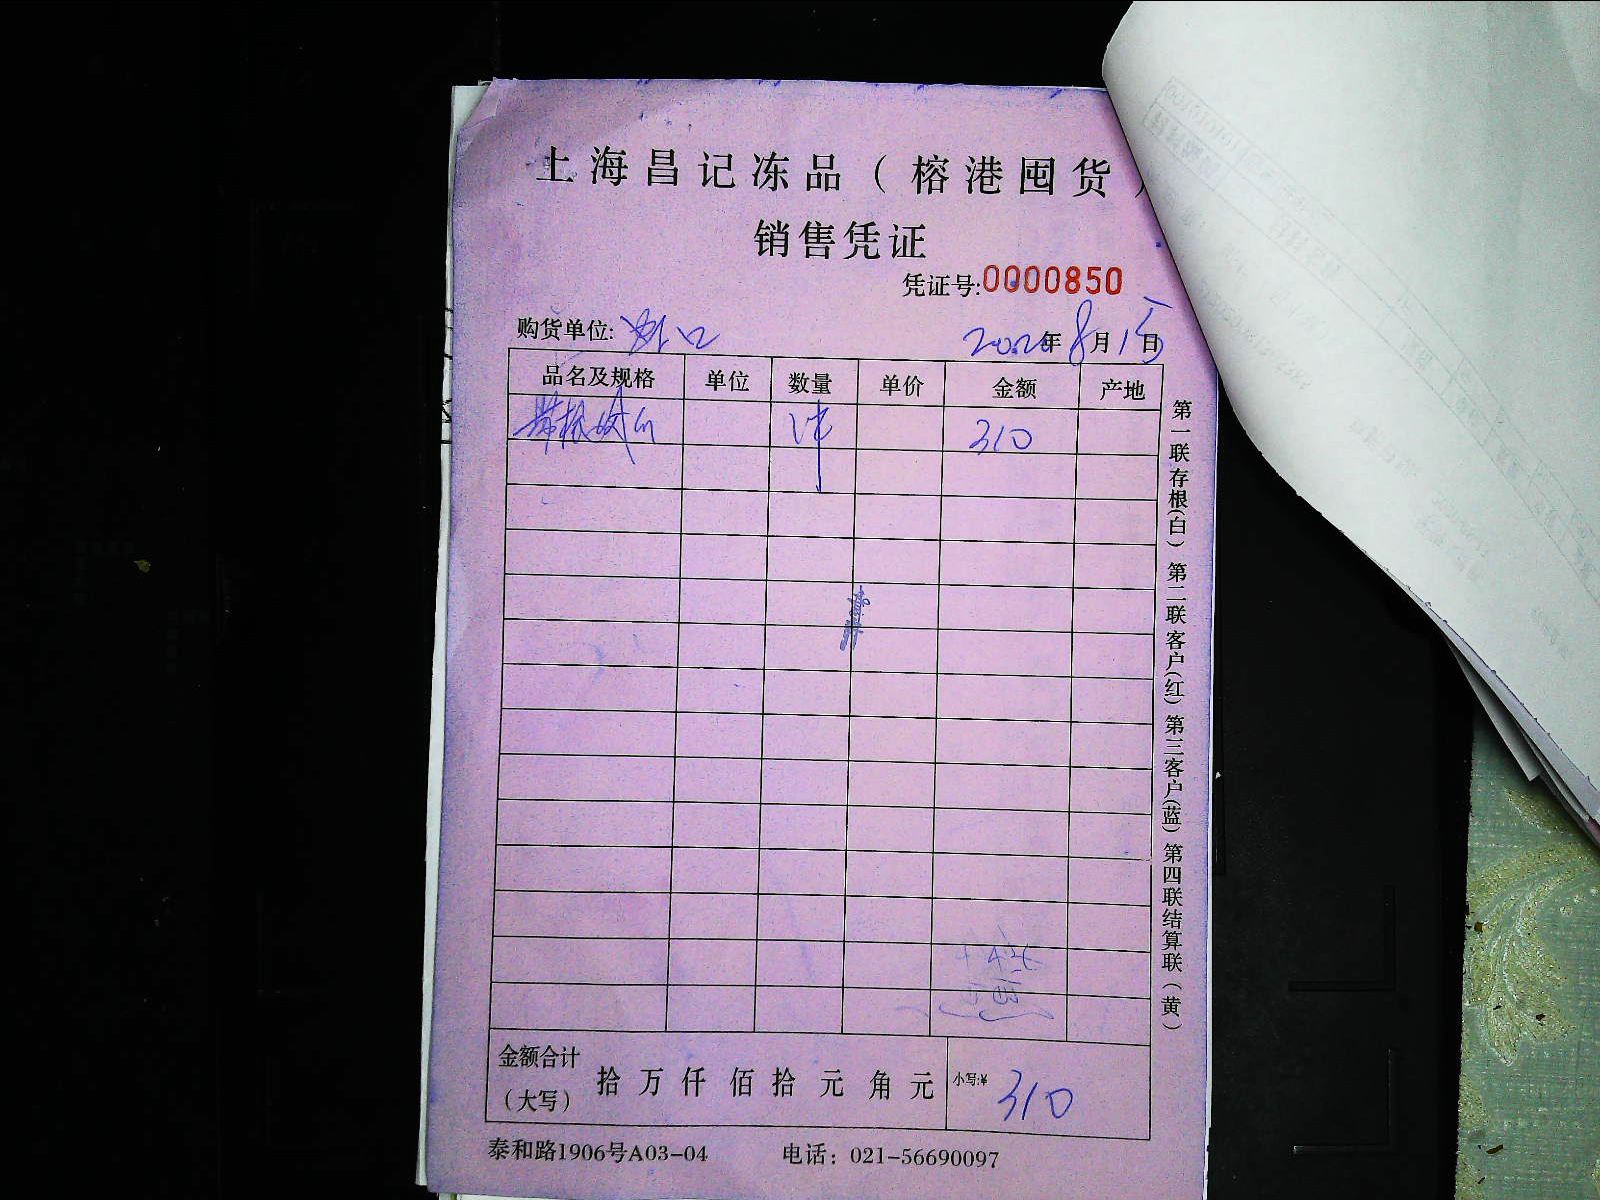 上海昌记冻品（榕港囤货）
销售凭证
凭证号:0000850
购货单位:
年8月15日
品名及规格 单位 数量 单价 金额 产地
1件 310
金额合计（大写） 拾 万 仟 佰 拾 元 角 元 小写:¥ 310
泰和路1906号A03-04 电话：021-56690097
第一联存根(白) 第二联客户(红) 第三客户(蓝) 第四联结算联(黄)